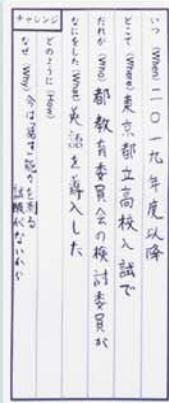 いつ（When）二〇一九年度以降
どこで（Where）東京都立高校入試で
だれが（Who）都教育委員会の検討委員が
なにをした（What）英語を導入した
チャレンジ
どのように（How）
なぜ（Why）今は「話す」能力を測る
試験がないから